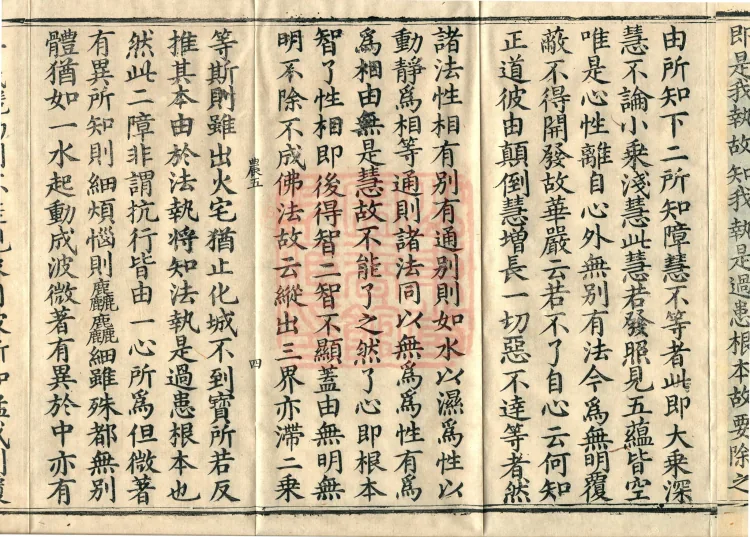 即是我執故知我執是過患根本故要除之
由所知下二所知障慧不等者此即大乘深
慧不論小乘淺慧此慧若發照見五蘊皆空
唯是心性離自心外無別有法今為無明覆
蔽不得開發故華嚴云若不了自心云何知
正道彼由顛倒慧增長一切惡不達等者然
諸法性相有別有通別則如水以濕為性以
動靜為相等通則諸法同以無為為性有為
為相由無是慧故不能了之然了心即根本
智了性相即後得智二智不顯蓋由無明無
明不除不成佛法故云縱出三界亦滯二乘
農五
四
等斯則雖出火宅猶止化城不到寶所若反
推其本由於法執將知法執是過患根本也
然此二障非謂抗行皆由一心所為但微著
有異所知則細煩惱則麤麤細雖殊都無別
體猶如一水起動成波微著有異於中亦有